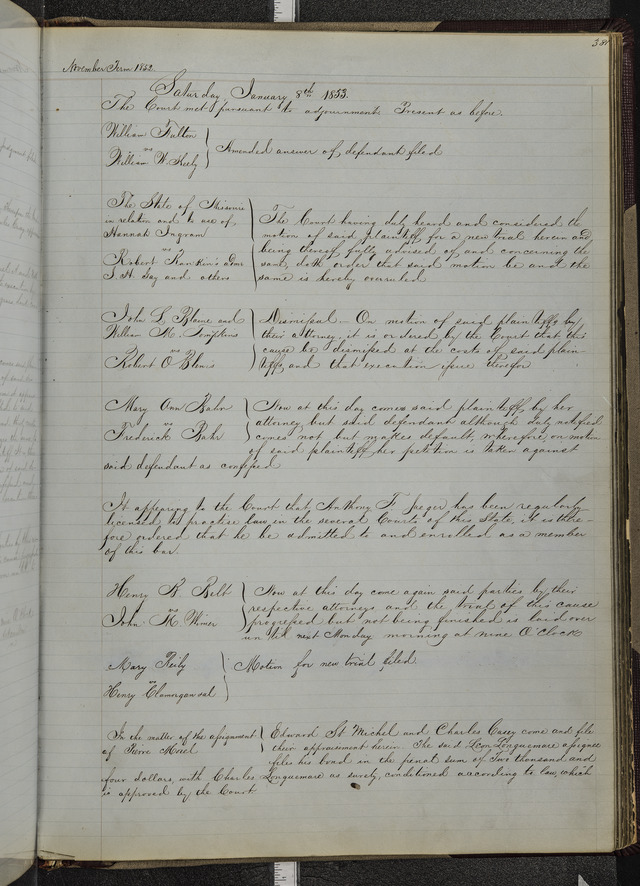 November Term 1852.
Saturday January 8th 1853.
The Court met pursuant to adjournment. Present as before.
William
vs
William W.
Amended answer of defendant filed
The State of Missouri
in relation and to use of
Hannah Ingram
vs
Robert Rankin's admr
S. H. Gay and others
The Court having duly heard and considered the
motion of said plaintiff for a new trial herein and
being thereof fully advised of and concerning the
same, doth order that said motion be and the
same is hereby overruled
John S. Blaine and
William M. Tompkins
vs
Robert O'Blenis
Dismissal - On motion of said plaintiffs by
their attorney, it is ordered by the Court that this
cause be dismissed at the costs of said plain-
tiffs, and that execution issue therefor
Mary Ann Bahr
vs
Frederick Bahr
Now at this day comes said plaintiff, by her
attorney but said defendant although duly notified
comes not but makes default, wherefore, on motion
of said plaintiff, her petition is taken against
said defendant as confessed
It appearing to the Court that, Anthony F. Jaeger has been regularly
licensed to practise law, in the several Courts of this State, it is there-
fore ordered that he be admitted to and enrolled as a member
of this bar.
Henry B Belt
vs
John M Wimer
Now at this day come again said parties by their
respective attorneys and the trial of this cause
progressed but not being finished is laid over
until next Monday morning at nine O'Clock
Mary Reily
vs
Henry Clamorgan et al
Motion for new trial filed.
In the matter of the assignment
of Pierre
Edward St Michel and Charles Casey come and file
their appraisement herein. The said Leon Longuemare assignee
files his bond in the penal sum of Two thousand and
four dollars, with Charles Longuemare as surety, conditioned according to law, which
is approved by the Court.